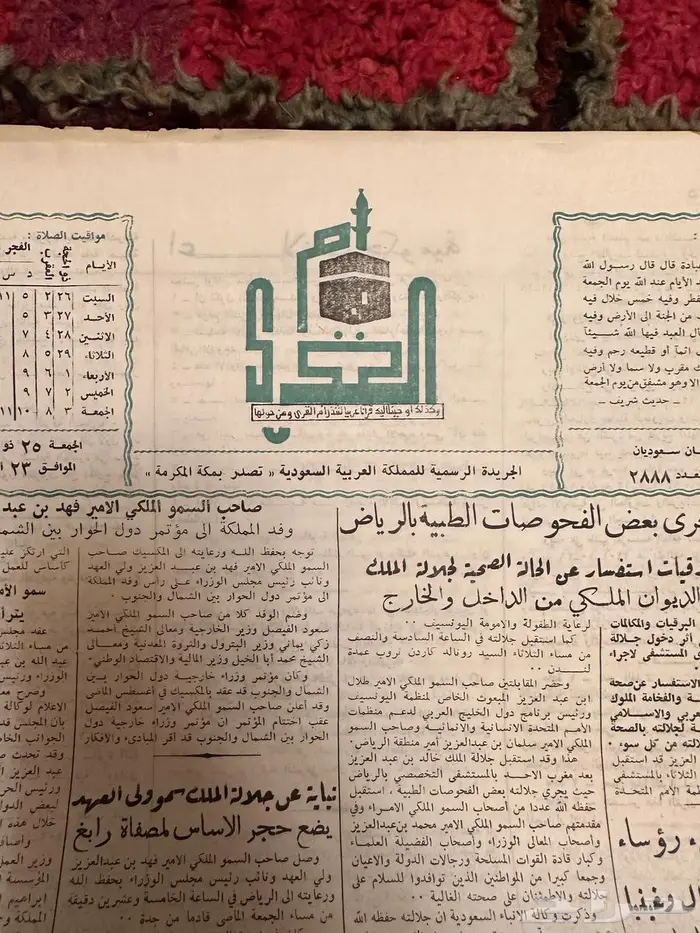 أم القرى
وكذلك أوحينا إليك قرآنا عربيا لتنذر أم القرى ومن حولها
الجريدة الرسمية للمملكة العربية السعودية « تصدر بمكة المكرمة »
مواقيت الصلاة :
الأيام ذو الحجة المغرب الفجر
د س
السبت ٢٦ ٢ ٥ ١١
الأحد ٢٧ ٣ ٥
الاثنين ٢٨ ٤ ٧
الثلاثاء ٢٩ ٥ ٨
الأربعاء ١ ٦ ٩
الخميس ٢ ٧ ٩
الجمعة ٣ ٨ ١٠ ١١
الجمعة ٢٥ ذو
الموافق ٢٣
قال رسول الله
الأيام عند الله يوم الجمعة
وفيه خمس خلال فيه
من الجنة الى الأرض وفيه
العبد فيها الله شيئا
اثما أو قطيعة رحم وفيه
مقرب ولا سما ولا أرض
الا وهو مشفق من يوم الجمعة
ـ حديث شريف ـ
سعوديان
٢٨٨٨
بعض الفحوصات الطبية بالرياض
استفسار عن الحالة الصحية لجلالة الملك
الديوان الملكي من الداخل والخارج
البرقيات والمكالمات
دخول جلالة
المستشفى لاجراء
الاستفسار عن صحة
والفخامة الملوك
والاسلامي
لجلالته بالصحة
من كل سوء .
العزيز قد استقبل
الثلاثاء بالمستشفى
الأمم المتحدة
رؤساء
لرعاية الطفولة والامومة اليونسيف ..
كما استقبل جلالته في الساعة السادسة والنصف
من مساء الثلاثاء السيد رونالد كاردن ثروب عمدة
لندن ..
وحضر المقابلتين صاحب السمو الملكي الامير طلال
ابن عبد العزيز المبعوث الخاص لمنظمة اليونيسيف
ورئيس برنامج دول الخليج العربي لدعم منظمات
الأمم المتحدة الانسانية والانمائية وصاحب السمو
الملكي الامير سلمان بن عبدالعزيز أمير منطقة الرياض .
هذا وقد استقبل جلالة الملك خالد بن عبد العزيز
بعد مغرب الاحد بالمستشفى التخصصي بالرياض
حيث يجري جلالته بعض الفحوصات الطبية ، استقبل
حفظه الله عددا من أصحاب السمو الملكي الامراء وفي
مقدمتهم صاحب السمو الملكي الامير محمد بن عبدالعزيز
وأصحاب المعالي الوزراء وأصحاب الفضيلة العلماء
وكبار قادة القوات المسلحة ورجالات الدولة والاعيان
وجمعا كبيرا من المواطنين الذين توافدوا للسلام على
جلالته والاطمئنان على صحته الغالية ..
وذكرت وكالة الانباء السعودية ان جلالته حفظه الله
صاحب السمو الملكي الامير فهد بن عبد
وفد المملكة الى مؤتمر دول الحوار بين الشمال
توجه بحفظ الله ورعايته الى المكسيك صاحب
السمو الملكي الامير فهد بن عبد العزيز ولي العهد
ونائب رئيس مجلس الوزراء على رأس وفد المملكة
الى مؤتمر دول الحوار بين الشمال والجنوب .
وضم الوفد كلا من صاحب السمو الملكي الامير
سعود الفيصل وزير الخارجية ومعالي الشيخ احمد
زكي يماني وزير البترول والثروة المعدنية ومعالي
الشيخ محمد أبا الخيل وزير المالية والاقتصاد الوطني .
وكان مؤتمر وزراء خارجية دول الحوار بين
الشمال والجنوب قد عقد بالمكسيك في اغسطس الماضي
وقد أعلن صاحب السمو الملكي الامير سعود الفيصل
عقب اختتام المؤتمر ان مؤتمر وزراء خارجية دول
الحوار بين الشمال والجنوب قد اقر المبادىء والافكار
نيابة عن جلالة الملك سمو ولي العهد
يضع حجر الاساس لمصفاة رابغ
وصل صاحب السمو الملكي الامير فهد بن عبدالعزيز
ولي العهد ونائب رئيس مجلس الوزراء بحفظ الله
ورعايته الى الرياض في الساعة الخامسة وعشرين دقيقة
من مساء الجمعة الماضي قادما من جدة ..
التي ارتكز عليها
كأساس للعمل
سمو الأمير
يترأس
عقد مجلس
من مساء الثلاثاء
عبد الله بن عبد
الوزراء ورئيس
وصرح معالي
الاعلام لوكالة
بأن المجلس قد
الجوانب الخاصة
وقد تحدث
عبد العزيز
ورئيس الحرس
لبعض الدول
خلال هذه
وأضاف
وزير العمل
المؤسسة
ابراهيم
المملكة